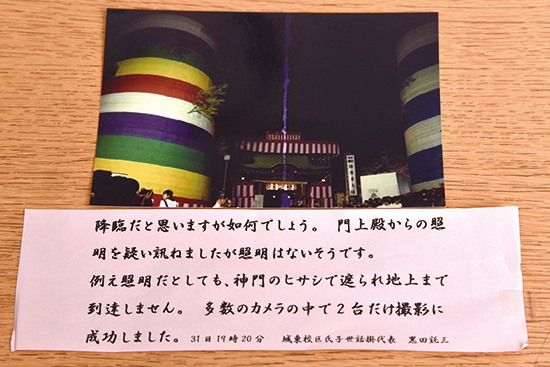 降臨だと思いますが如何でしょう。　門上殿からの照
明を疑い訊ねましたが照明はないそうです。
例え照明だとしても、神門のヒサシで遮られ地上まで
到達しません。　多数のカメラの中で２台だけ撮影に
成功しました。　31日19時20分　城東校区氏子世話掛代表　黒田託三